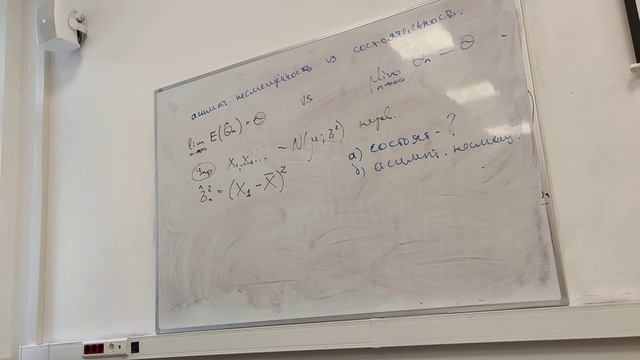 асимпт. несмещённость vs состоятельность.
lim n→∞ E(θ̂n) = θ vs plim n→∞ θ̂n = θ.
Упр X₁, X₂, ... ~ N(μ; σ²) незав.
σ̂²n = (X₁ − X̄)²
а) состоят - ?
б) асимпт. несмещ.